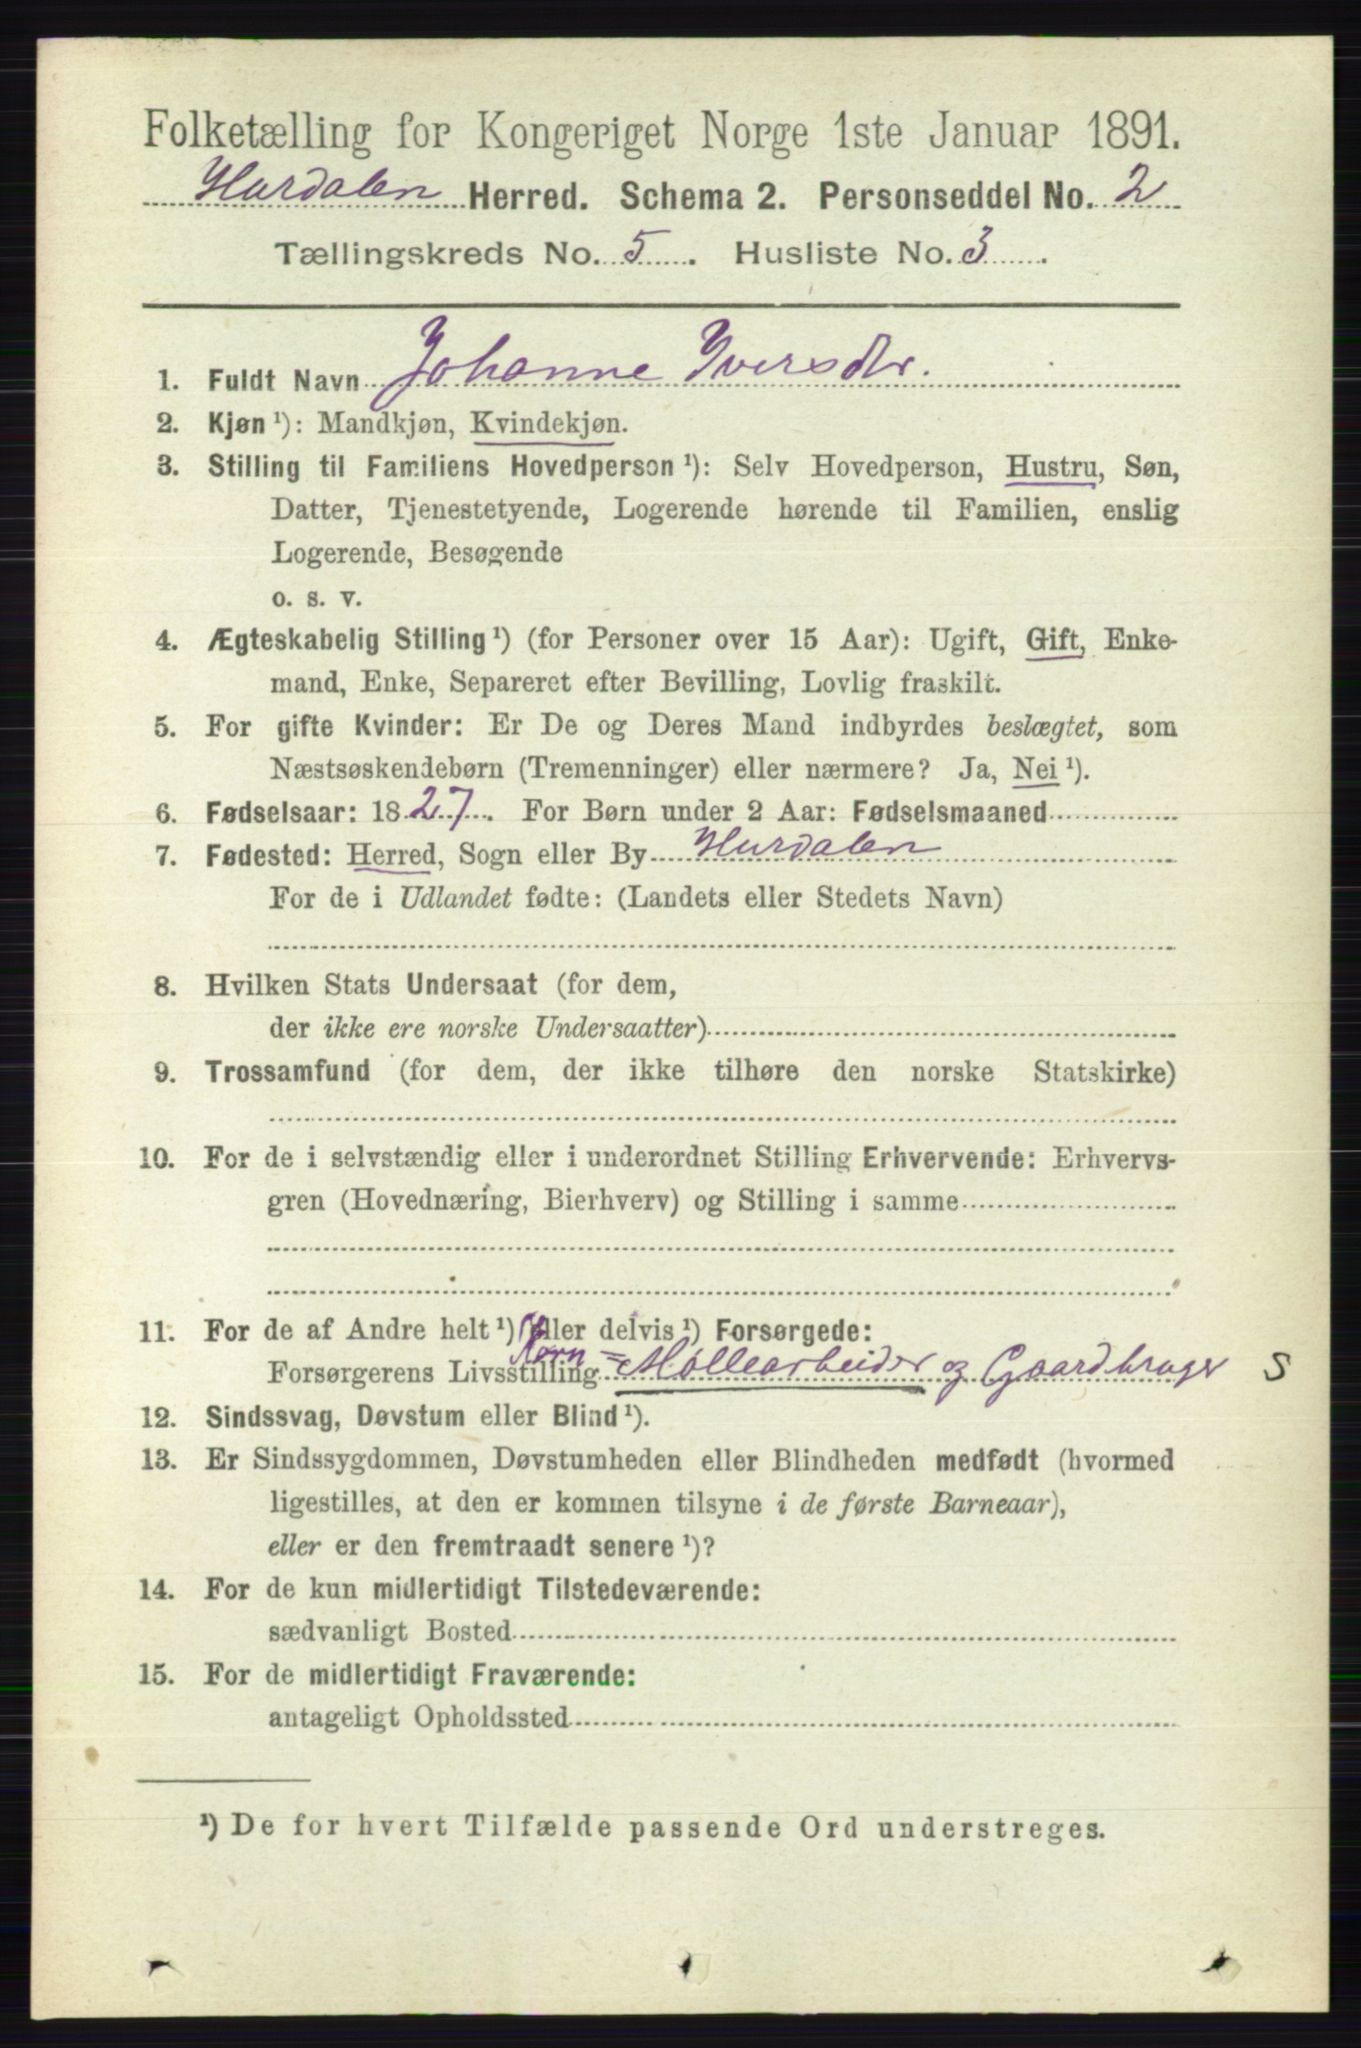 Folketælling for Kongeriget Norge 1ste Januar 1891.
Hurdalen Herred. Schema 2. Personseddel No. 2
Tællingskreds No. 5. Husliste No. 3.
1. Fuldt Navn Johanne Iversdtr.
2. Kjøn ¹): Mandkjøn, Kvindekjøn.
3. Stilling til Familiens Hovedperson ¹): Selv Hovedperson, Hustru, Søn,
Datter, Tjenestetyende, Logerende hørende til Familien, enslig
Logerende, Besøgende
o. s. v.
4. Ægteskabelig Stilling ¹) (for Personer over 15 Aar): Ugift, Gift, Enke-
mand, Enke, Separeret efter Bevilling, Lovlig fraskilt.
5. For gifte Kvinder: Er De og Deres Mand indbyrdes beslægtet, som
Næstsøskendebørn (Tremenninger) eller nærmere? Ja, Nei ¹).
6. Fødselsaar: 1827. For Børn under 2 Aar: Fødselsmaaned
7. Fødested: Herred, Sogn eller By Hurdalen
For de i Udlandet fødte: (Landets eller Stedets Navn)
8. Hvilken Stats Undersaat (for dem,
der ikke ere norske Undersaatter)
9. Trossamfund (for dem, der ikke tilhøre den norske Statskirke)
10. For de i selvstændig eller i underordnet Stilling Erhvervende: Erhvervs-
gren (Hovednæring, Bierhverv) og Stilling i samme
11. For de af Andre helt ¹) eller delvis ¹) Forsørgede:
Forsørgerens Livsstilling Korn=Møllearbeider og Gaardbruger S
12. Sindssvag, Døvstum eller Blind ¹).
13. Er Sindssygdommen, Døvstumheden eller Blindheden medfødt (hvormed
ligestilles, at den er kommen tilsyne i de første Barneaar),
eller er den fremtraadt senere ¹)?
14. For de kun midlertidigt Tilstedeværende:
sædvanligt Bosted
15. For de midlertidigt Fraværende:
antageligt Opholdssted
¹) De for hvert Tilfælde passende Ord understreges.